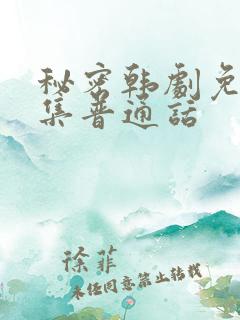 秘密韩剧免
集普通话
徐菲
未经同意禁止转载